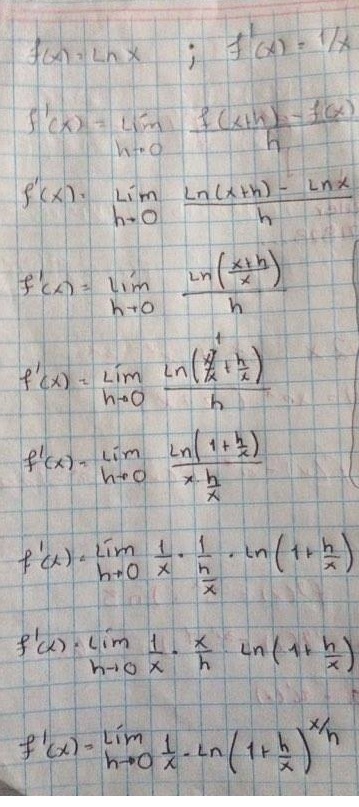 f(x) = Ln x ; f'(x) = 1/x
f'(x) = Lím h→0 f(x+h) - f(x) / h
f'(x) = Lím h→0 Ln(x+h) - Ln x / h
f'(x) = Lím h→0 Ln(x+h / x) / h
f'(x) = Lím h→0 Ln(x/x + h/x) / h
f'(x) = Lím h→0 Ln(1 + h/x) / x · h/x
f'(x) = Lím h→0 1/x · 1 / h/x · Ln(1 + h/x)
f'(x) = Lím h→0 1/x · x/h Ln(1 + h/x)
f'(x) = Lím h→0 1/x · Ln(1 + h/x)^x/h